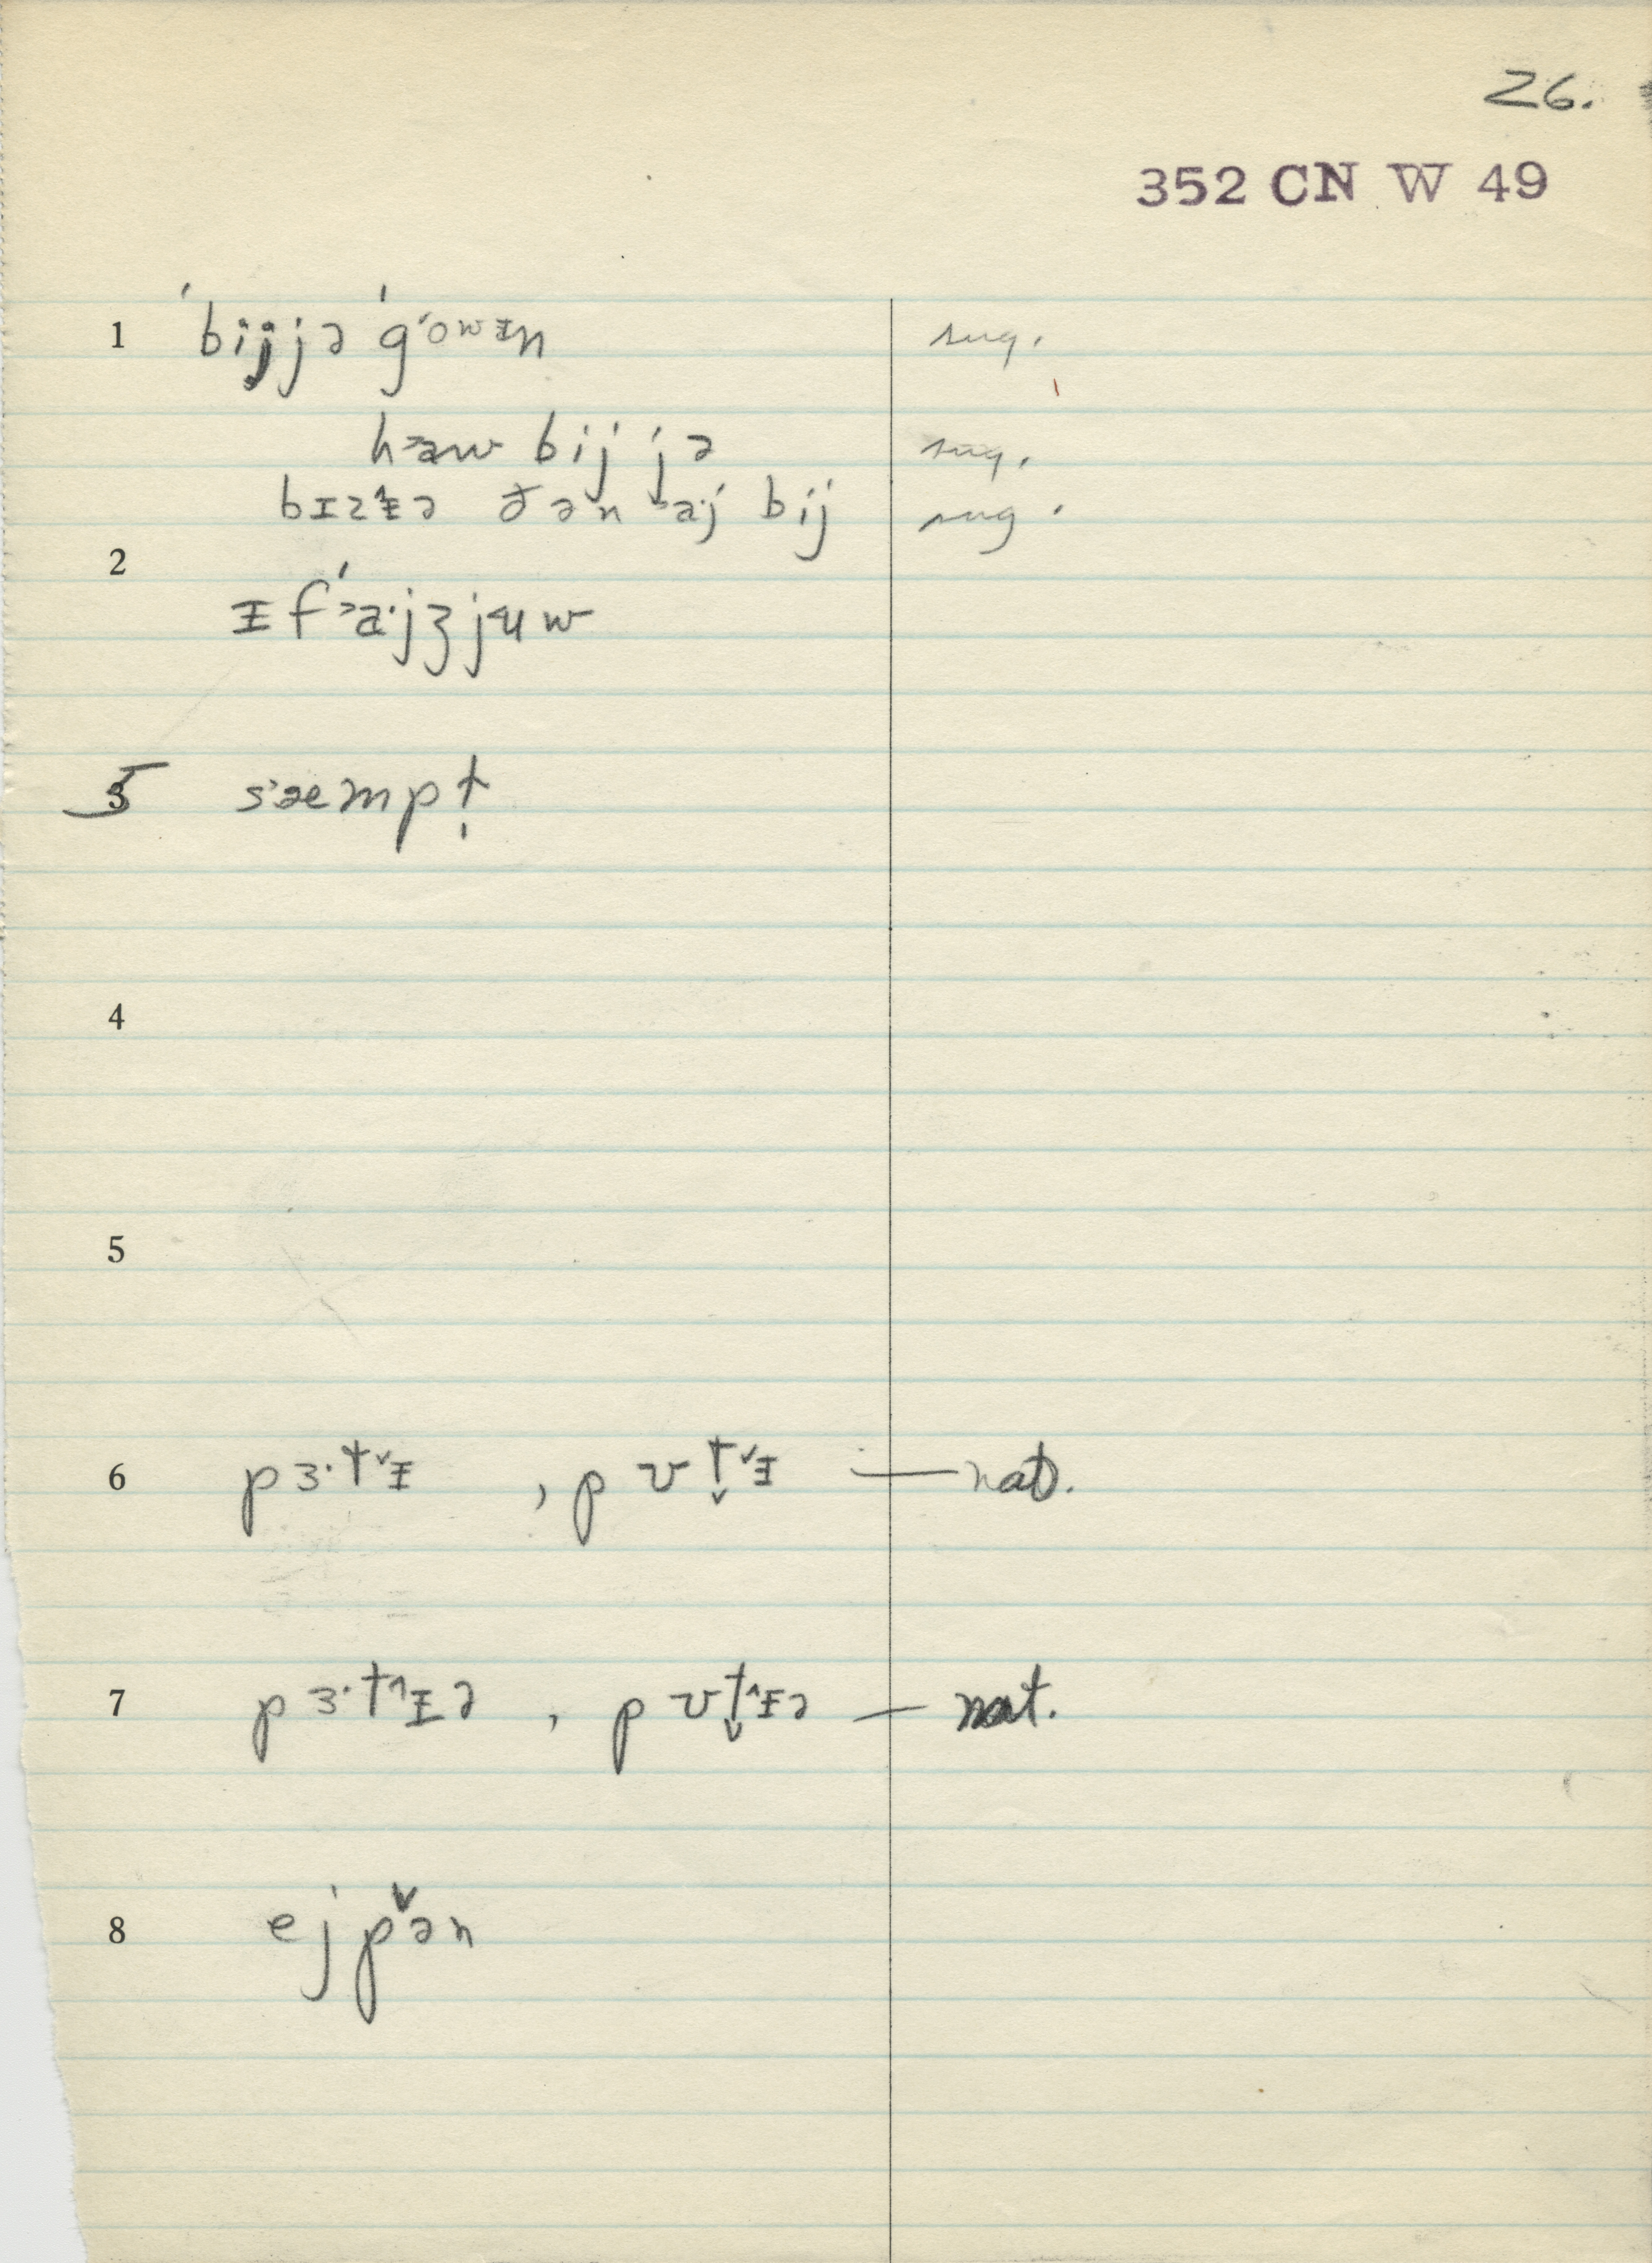 26.
352 CN W 49
1 ˈbijjə ˈgowᵻn sug.
hæw bij jə sug.
bɪzᵻə ðən aj bij sug.
2
ᵻf aˑjʒjuw
3 5 sæmpt̩
4
5
6 pɜˑt˅ᵻ , pʊt̬˅ᵻ — nat.
7 pɜˑt^ᵻə , pʊt̬^ᵻə — nat.
8 ejp˅ən